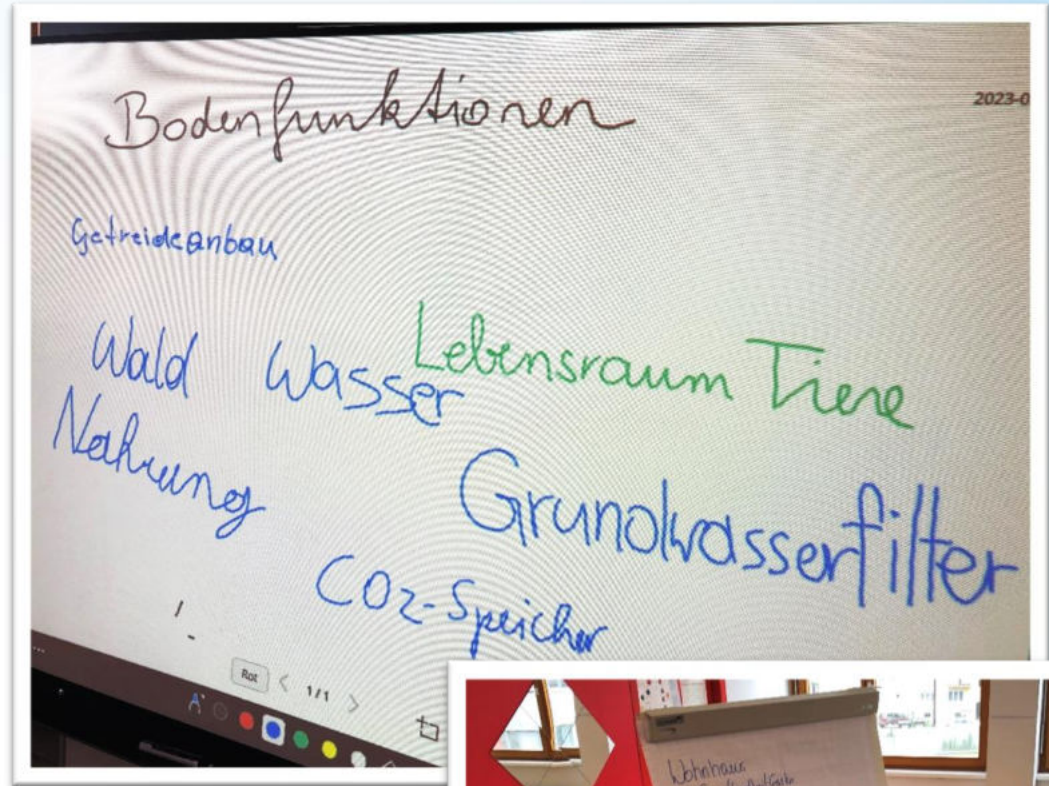 Bodenfunktionen
2023-0
Getreideanbau
Lebensraum Tiere
Wald Wasser
Nahrung
Grundwasserfilter
CO2-Speicher
Rot
1/1
Wohnhaus